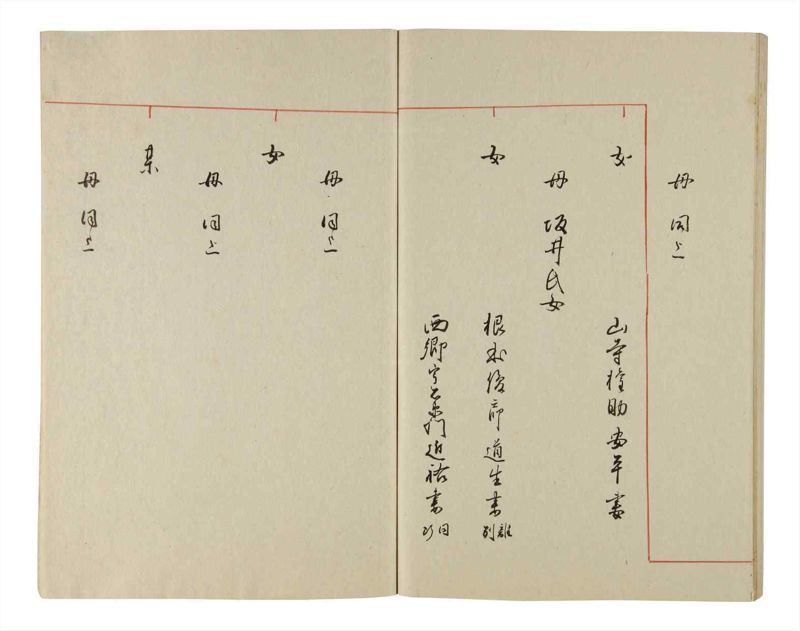 母同上
女
山寺権助安平妻
母坂井氏女
女
根来後前道生妻
離別
西郷宇右衛門近裕妻
同断
母同上
女
母同上
某
母同上